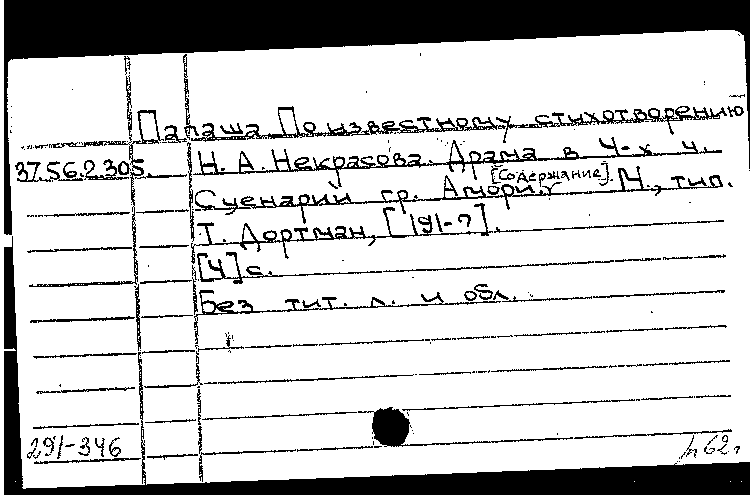 Папаша По известному стихотворению
37.56.2.305. Н. А. Некрасова. Драма в 4-х ч.
Сценарий гр. Амори. [Содержание]. М., тип.
Т. Дортман, [191-?].
[4] с.
Без тит. л. и обл.
291-346
п 62 г